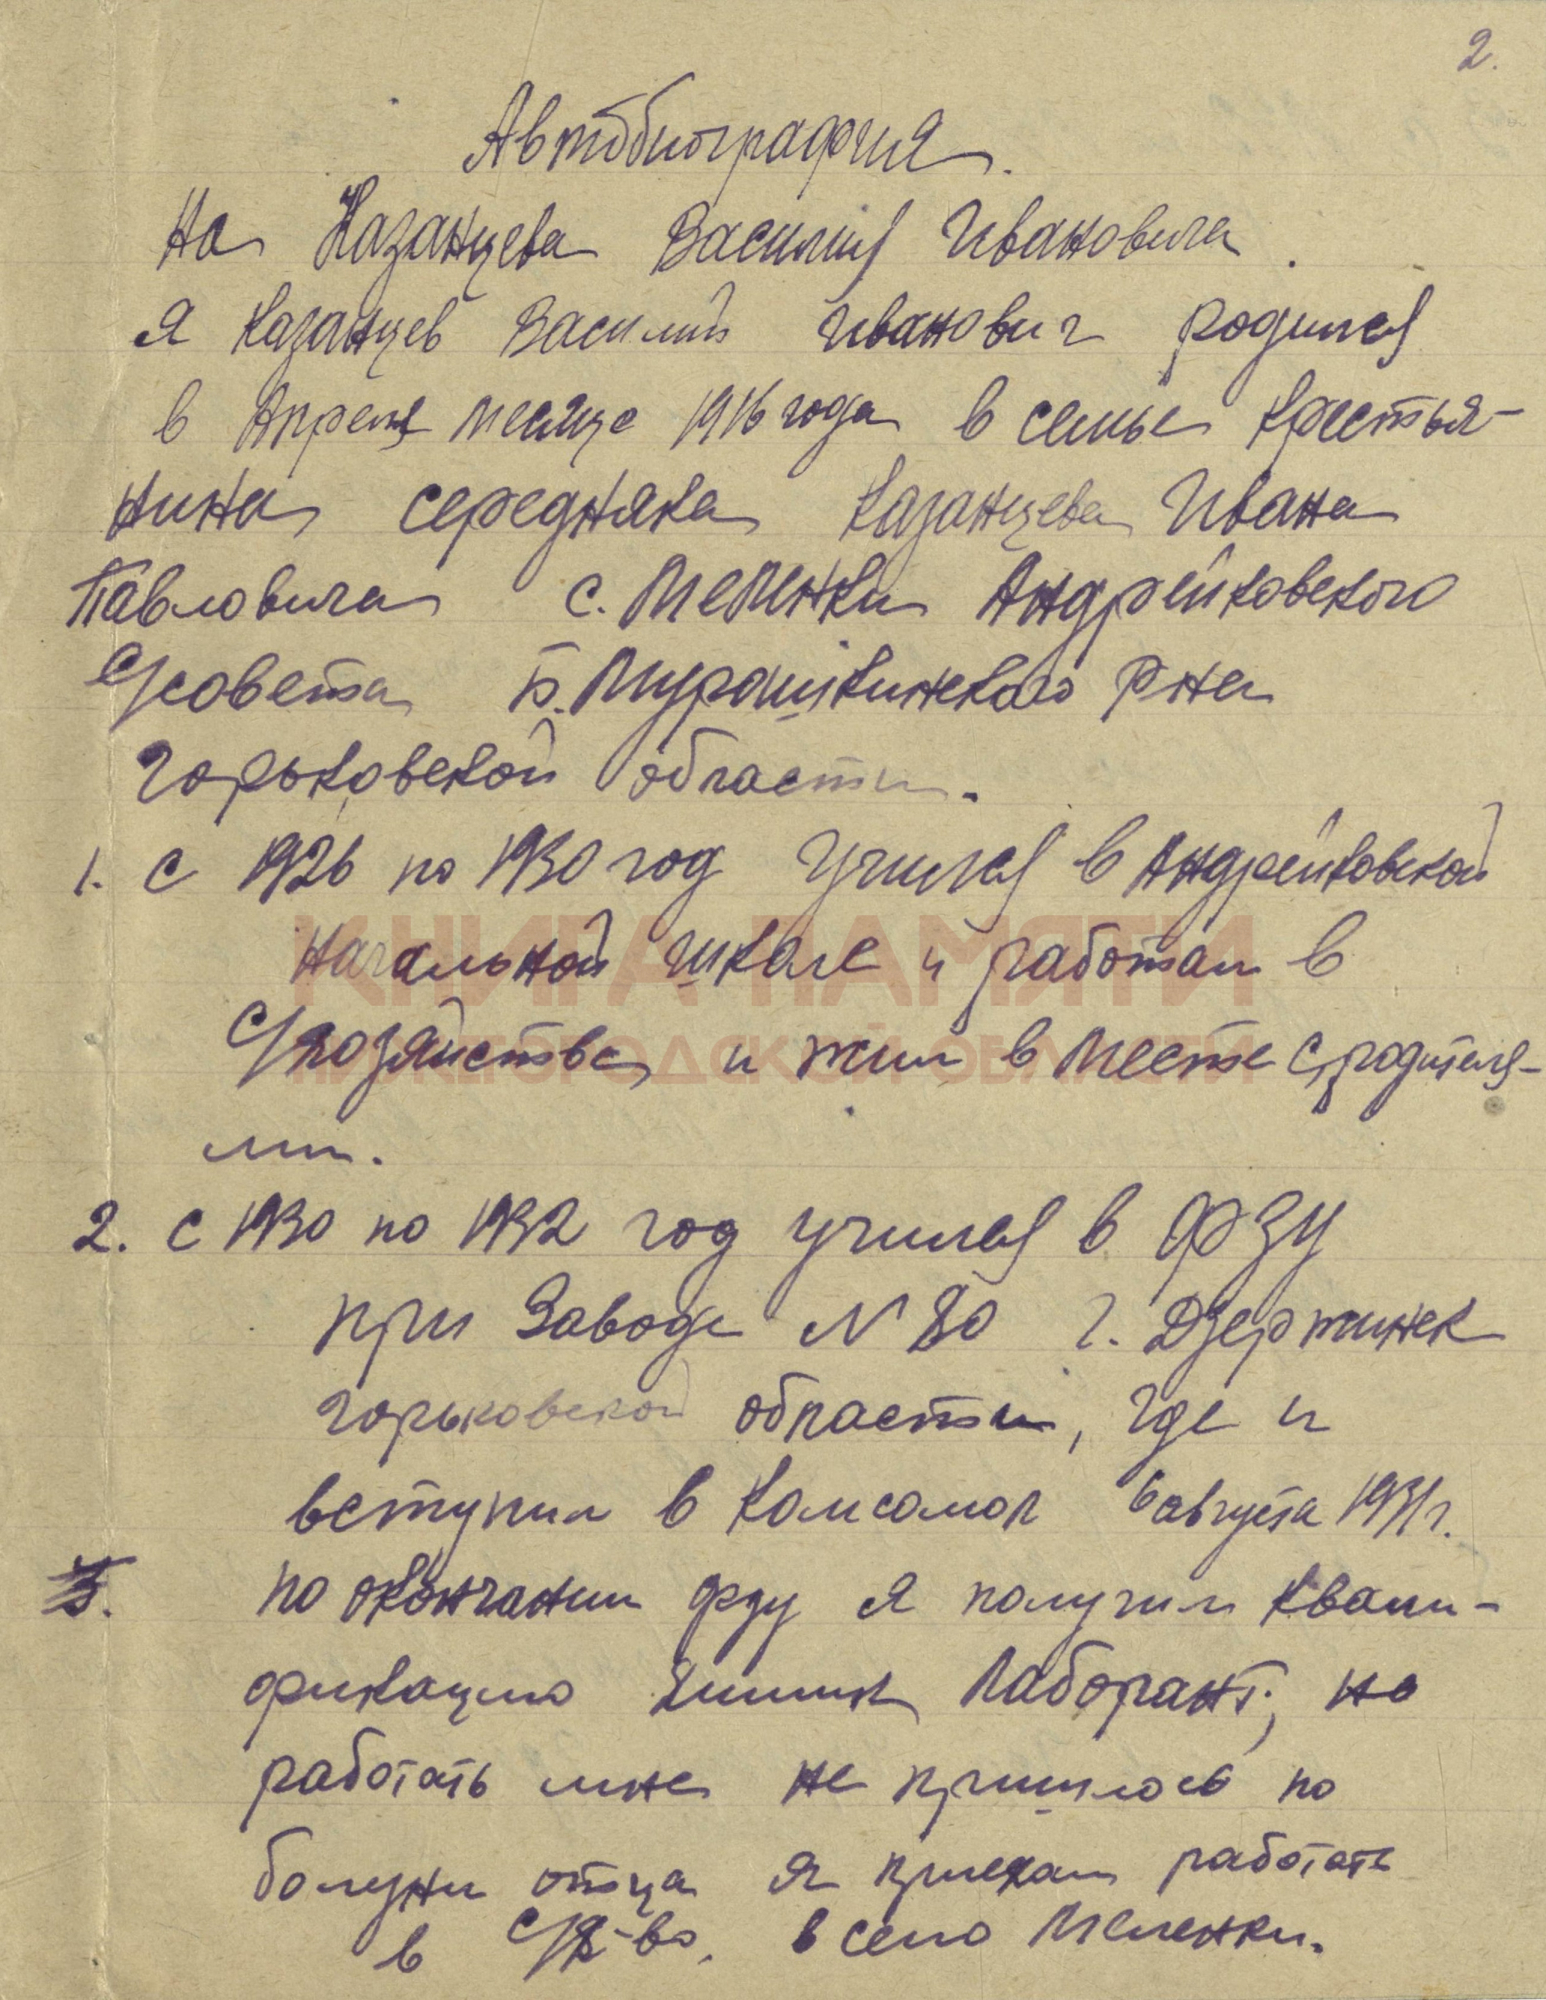 2.
Автобиография.
На Казанцева Василия Ивановича.
Я Казанцев Василий Иванович родился
в Апреле месяце 1916 года в семье крестья-
нина середняка Казанцева Ивана
Павловича с. Меленки Андрейковского
С/совета Б. Мурашкинского Р-на
Горьковской области.
1. С 1926 по 1930 год учился в Андрейковской
начальной школе и работал в
КНИГА ПАМЯТИ
С/хозяйстве и жил в месте с родителя-
НИЖЕГОРОДСКОЙ ОБЛАСТИ
ми.
2. С 1930 по 1932 год учился в ФЗУ
при Заводе N 80 г. Дзержинск
Горьковской области, где и
вступил в комсомол 6 августа 1931 г.
3. по окончании фзу я получил квали-
фикацию химик Лаборант, но
работать мне не пришлось по
болезни отца я приехал работать
в С/Х-во, в село Меленки.